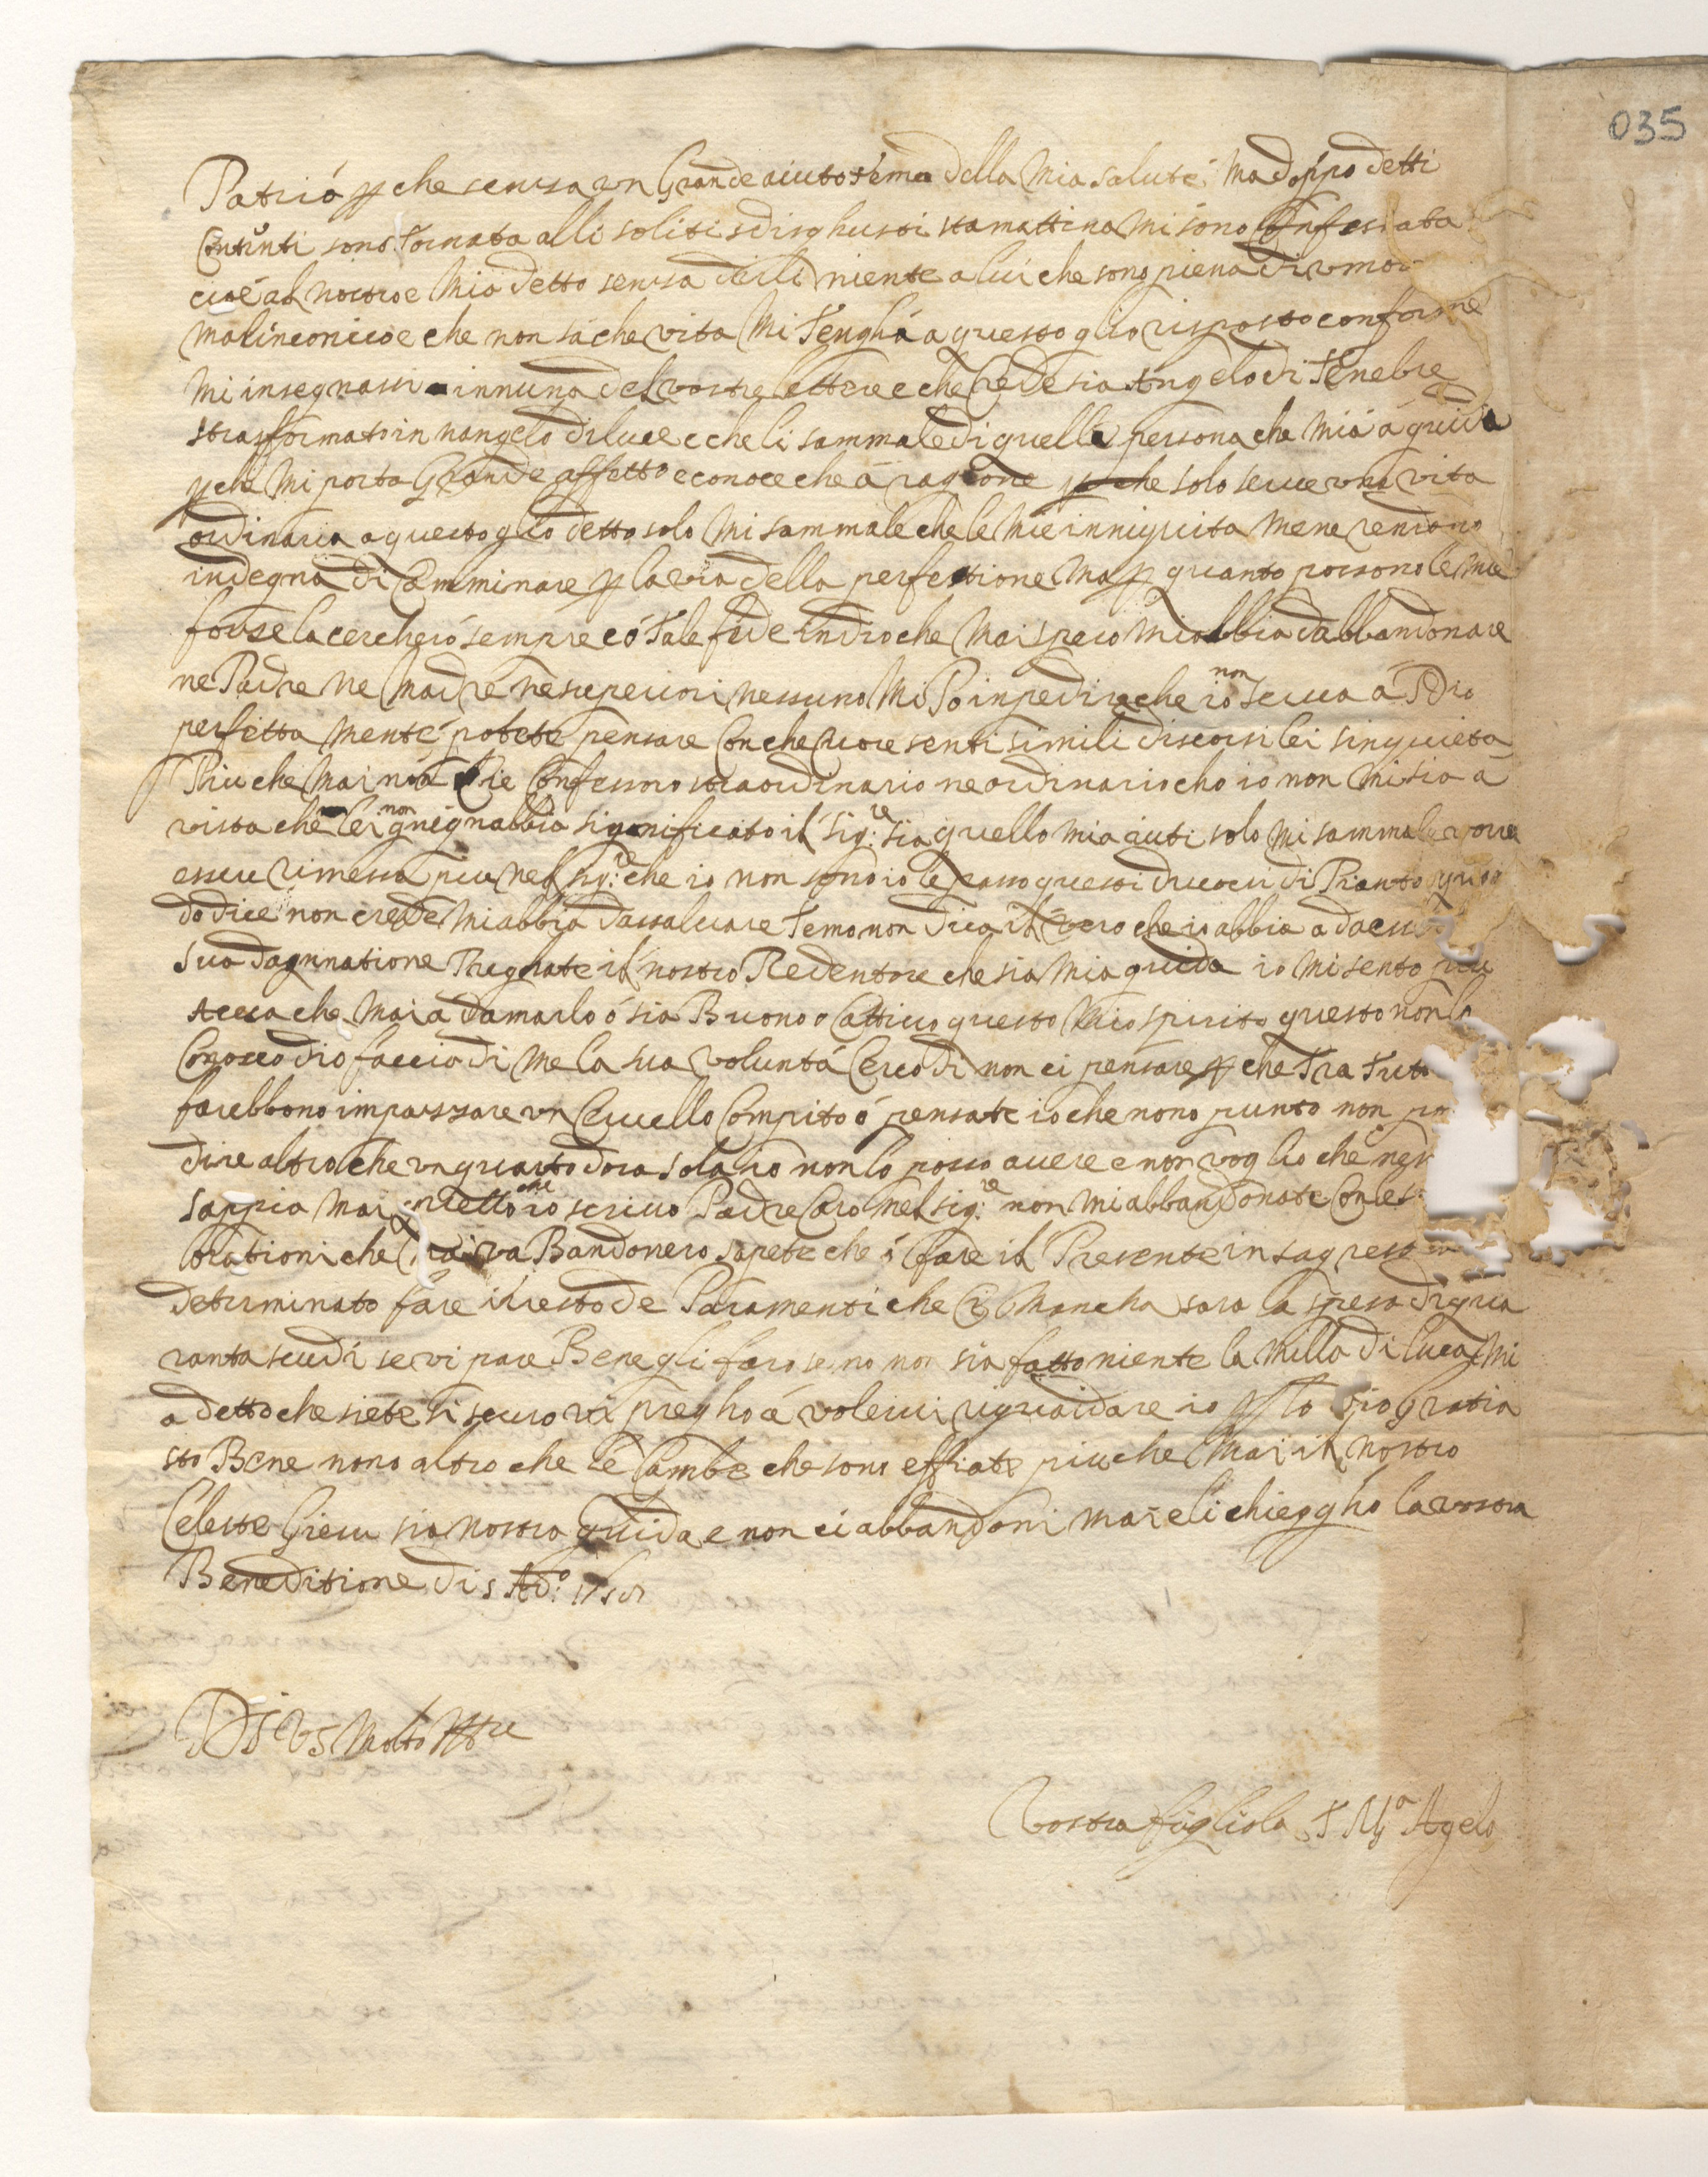 035
Patrió p che sensa un Grande aiuto têmo della Mia salute, Ma doppo detti
Contenti sono tornata alli soliti sdisghusti stamattina Mi sono Confessata
cioè al nostro e Mia detto sensa dirli niente a lui che sono piena di umor
Malinconico e che non sà che vita Mi Tengha a questo glio risposto conforme
Mi insegnassi innuna del vostre lettere e che Crede sia Angelo di Tenebre
strasformato in nangelo di luce e che li sammale di quella persona che Mia a guida
p che Mi porta Grande affetto e conosce che à ragione p che solo serve una vita
ordinaria a questo glio detto solo Mi sammale che le Mie inniquita Mene rendano
indegna di Camminare p la via della perfetione Ma p quanto possono le Mie
forse la cercherò sempre cò Tale fede in dio che Mai spero Miabbia dabbandonare
ne Padre ne Madre ne superiori nessuno Mi Po inpedire che io non serva a Dio
perfetta Mente potete pensare Con che Cuore senti simili discorsi lei singuieta
Piu che Mai non Cie Confessoro straordinario ne ordinario cho io non Mi sia à
vista che lei non gniegnabbia significato il Sig:re sia quello Mia iuti solo Mi sammale vorre
esser rimessa piu nel Sig:re che io non sono io le passo questi ducori di Pianto quan
do dice non crede Miabbia dassalvare Temo non dica il vero che io abbia a da esser
sua dagnnatione Preghate il nostro Redentore che sia Mia guida io Mi sento piu
Accesa che Mai à damarlo ó sia Buono o Cattivo questo Mio spirito questo non lo
Conosco dio faccia di Me la sua voluntá Cerco di non ci pensare p che Tra Tutt
farebbono impazzare un Cervello Compito ó pensate io che nono punto non po
dire altro che un quarto dora sola io non lo posso avere e non voglio che nes
sappia Mai quello che io scrivo Padre Caro nel Sig:re non Mi abbandonate Con les
orationi che Mai va Bandonero sapete che ò fare il Presente in sagrest
determinato fare il resto de Paramenti che Ci Mancha sara la spesa di qua
ranta scudi se vi pare Bene gli faro se no non sia fatto niente la Milla di luca Mi
a detto che siete si securo vi pregho à volervi riguardare io p sta dio gratia
sto Bene nono altro che le Gambe che sono effiate piu che Mai il nostro
Celeste Giesu sia nostra Guida e non ci abbandoni Mai e li chieggho la vostra
Beneditione di 5 Ad:o
Di VS Molto Ill:re
Vostra figliola S M:a Agelo